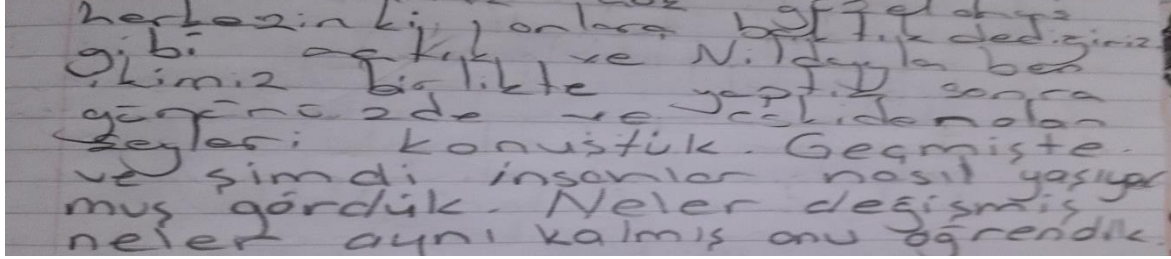 herkezin ki onlara dediğiniz
gibi ve Nildayla ben
ikimiz birlikte yaptıy sonra
günümüzde ve eskiden olan
şeyleri konuştuk. Geçmişte
ve şimdi insanlar nasıl yaşıyor
muş gördük. Neler değişmiş
neler aynı kalmış onu öğrendik.